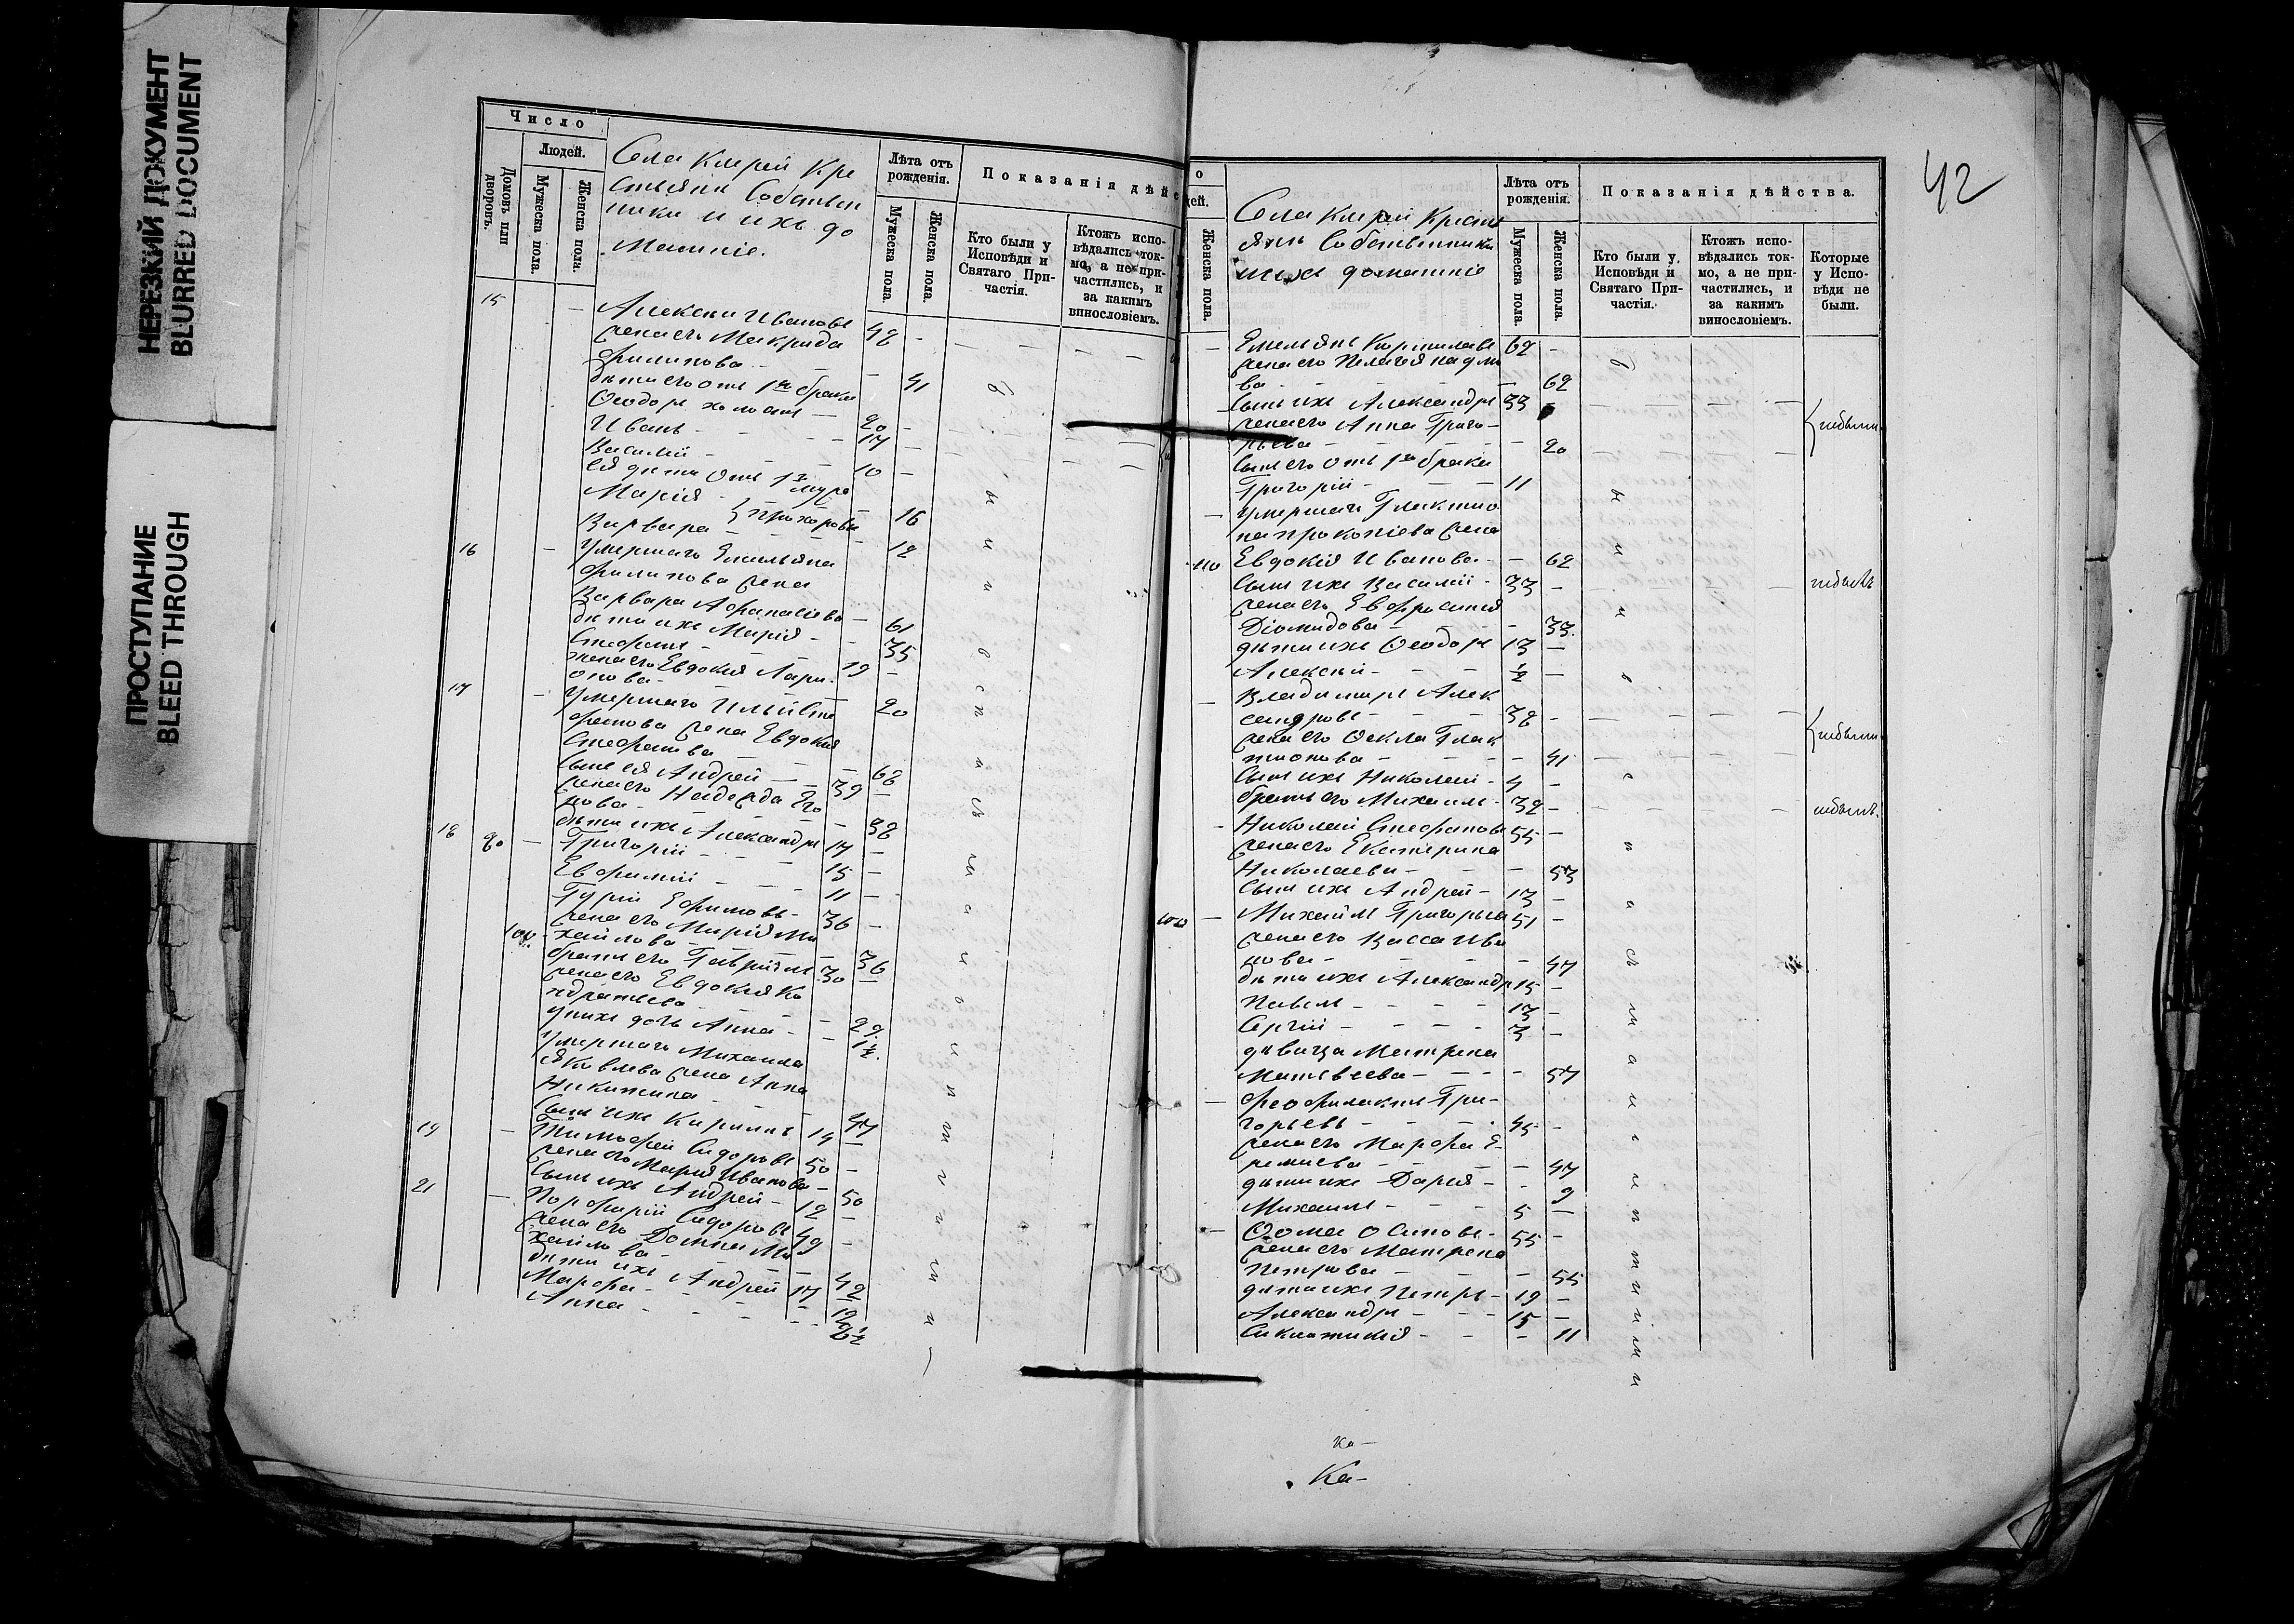 НЕРЕЗКИЙ ДОКУМЕНТ
BLURRED DOCUMENT
ПРОСТУПАНИЕ
BLEED THROUGH
Число
Людей.
Домовъ или дворовъ.
Мужеска пола.
Женска пола.
Села Кирей Кре
стьяне Собствен
ники и ихъ до
машніе.
Лѣта отъ рожденія.
Мужеска пола.
Женска пола.
Показанія дѣйс
Кто были у Исповѣди и Святаго При-
частія.
Ктожъ испо-
вѣдались ток-
мо, а не при-
частились, и
за какимъ
винословіемъ.
15 — Алексѣй Ивановъ 48 -
жена его Макрида
Филипова - 41
дѣти его отъ 1го брака
Ѳеодоръ холостъ — 20 -
Иванъ - - - 17 -
Василій - - - 10 -
ея дѣти отъ 1го мужа
Марія } Прохоровы - 16
Варвара - 12
16 - Умершаго Емельяна
Филипова жена
Варвара Афанасіева — 61
дѣти ихъ Марія - - 35
Стефанъ - - 19 -
жена его Евдокія Лари-
онова - — 20
17 - Умершаго Ильи Сте
фанова жена Евдокія
Стефанова - - - 68
сынъ ея Андрей - 39 -
жена его Надежда Его
рова - - - 38
дѣти ихъ Александръ 17 -
18 90 - Григорій - - - 15 -
Евфимій - - - 11 -
Гурій Ефимовъ - 36 -
жена его Марія Ми
хайлова - - 36
братъ его Гавріилъ 30 -
жена его Евдокія Ко
ндратьева - - 29
у нихъ дочь Анна - - 1½
Умершаго Михаила
Яковлева жена Анна
Никитина - - 47
сынъ ихъ Кириллъ 14 -
19 - Тимофей Сидоровъ 50 -
жена его Марія Иванова - 50
сынъ ихъ Андрей - 12 -
21 - Порфирій Сидоровъ 49 -
жена его Домна Ми
хайлова - - 42
дѣти ихъ Андрей 17 -
Марфа - - 12
Анна - - - - 2½
42
о
дей.
Женска пола.
Села Кирей Крестья
янъ Собственники
и ихъ домашніе
Лѣта отъ рожденія.
Мужеска пола.
Женска пола.
Показанія дѣйства.
Кто были у
Исповѣди и
Святаго При-
частія.
Ктожъ испо-
вѣдались ток-
мо, а не при-
частились, и
за какимъ
винословіемъ.
Которые
у Испо-
вѣди не
были.
- Емельянъ Корниловъ 62 -
жена его Пелагея Наумо
ва - - - - - 62
сынъ ихъ Александръ 33 - небыли
жена его Анна Григо-
рьева - - - - 20
сынъ его отъ 1го брака
Григорій - - - 11
- Умершаго Галактіо
на Прокопіева жена
110 Евдокія Иванова - - 62
сынъ ихъ Василій - 33 - небылъ
жена его Евфросинія
Діомидова - - - 33
дѣти ихъ Ѳеодоръ 13 -
Алексѣй - - - ½ -
- Владимиръ Алек
сандровъ - - - 38 - небыли
жена его Ѳекла Галак
тіонова - - - - 41
сынъ ихъ Николай - 4 -
братъ его Михаилъ - 32 - небылъ.
- Николай Стефановъ 55 -
жена его Екатерина
Николаева - - - 53
сынъ ихъ Андрей - 13 -
- Михаилъ Григорьевъ 51 -
жена его Васса Ива
нова - - - 47
дѣти ихъ Александръ 15 -
Павелъ - - - - 13 -
Сергій - - - - 3 -
дѣвица Матрена
Матвѣева - - - - 57
- Феофилактъ Гри-
горьевъ - - - 45 -
жена его Марфа Е-
ремѣева - - - 47
дѣти ихъ Дарья - - 9
Михаилъ - - - 5 -
- Ѳома Осиповъ - 55 -
жена его Матрена
Петрова - - - - 55
дѣти ихъ Петръ - 19 -
Александръ - - - 15 -
Синклитикія - - - 11
Ка-
Ка-